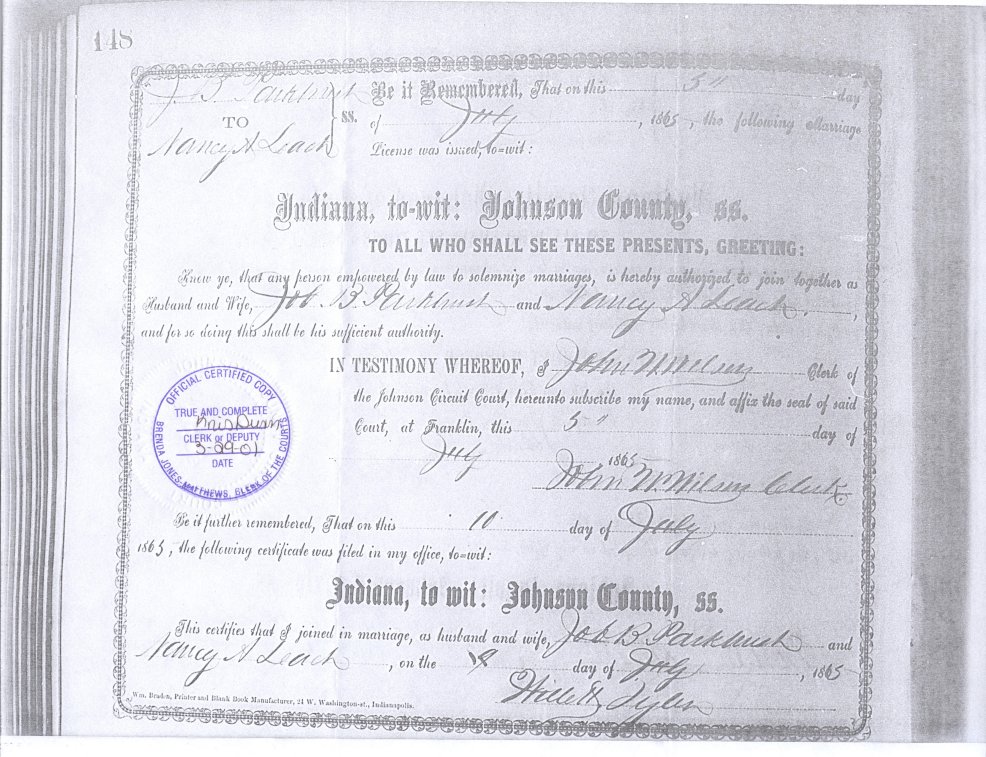 148
J. B. Parkhurst
TO
Nancy A Leach
ss.
Be it Remembered, That on this 5" day
of July, 1865, the following Marriage
License was issued, to=wit:
Indiana, to-wit: Johnson County, ss.
TO ALL WHO SHALL SEE THESE PRESENTS, GREETING:
Know ye, that any person empowered by law to solemnize marriages, is hereby authorized to join together as
Husband and Wife, Job B Parkhurst and Nancy A Leach,
and for so doing this shall be his sufficient authority.
IN TESTIMONY WHEREOF, I John W Wilson Clerk of
the Johnson Circuit Court, hereunto subscribe my name, and affix the seal of said
Court, at Franklin, this 5" day of
July 1865
John W Wilson Clerk
OFFICIAL CERTIFIED COPY
TRUE AND COMPLETE
Kris Dunn
CLERK or DEPUTY
3-29-01
DATE
BRENDA JONES-MATTHEWS, CLERK OF THE COURTS
Be it further remembered, That on this 10 day of July
1865, the following certificate was filed in my office, to=wit:
Indiana, to wit: Johnson County, ss.
This certifies that I joined in marriage, as husband and wife, Job B Parkhurst and
Nancy A Leach, on the day of July, 1865
Tyler
Wm. Braden, Printer and Blank Book Manufacturer, 24 W. Washington-st., Indianapolis.